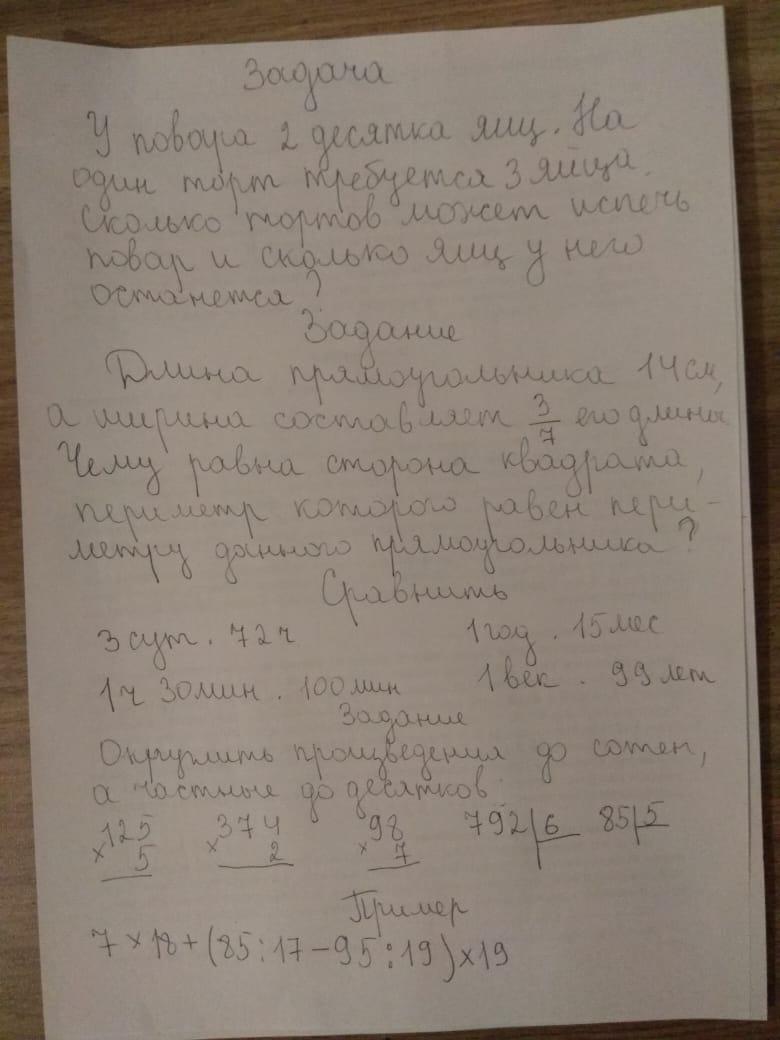 Задача
У повара 2 десятка яиц. На
один торт требуется 3 яйца.
Сколько тортов может испечь
повар и сколько яиц у него
останется?
Задание
Длина прямоугольника 14 см,
а ширина составляет 3/7 его длины.
Чему равна сторона квадрата,
периметр которого равен пери-
метру данного прямоугольника?
Сравнить
3 сут . 72 ч 1 год . 15 мес
1 ч 30 мин . 100 мин 1 век . 99 лет
Задание
Округлить произведения до сотен,
а частные до десятков.
125 374 98 792 6 85 5
× 5 × 2 × 7
Пример
7 × 18 + (85 : 17 − 95 : 19) × 19